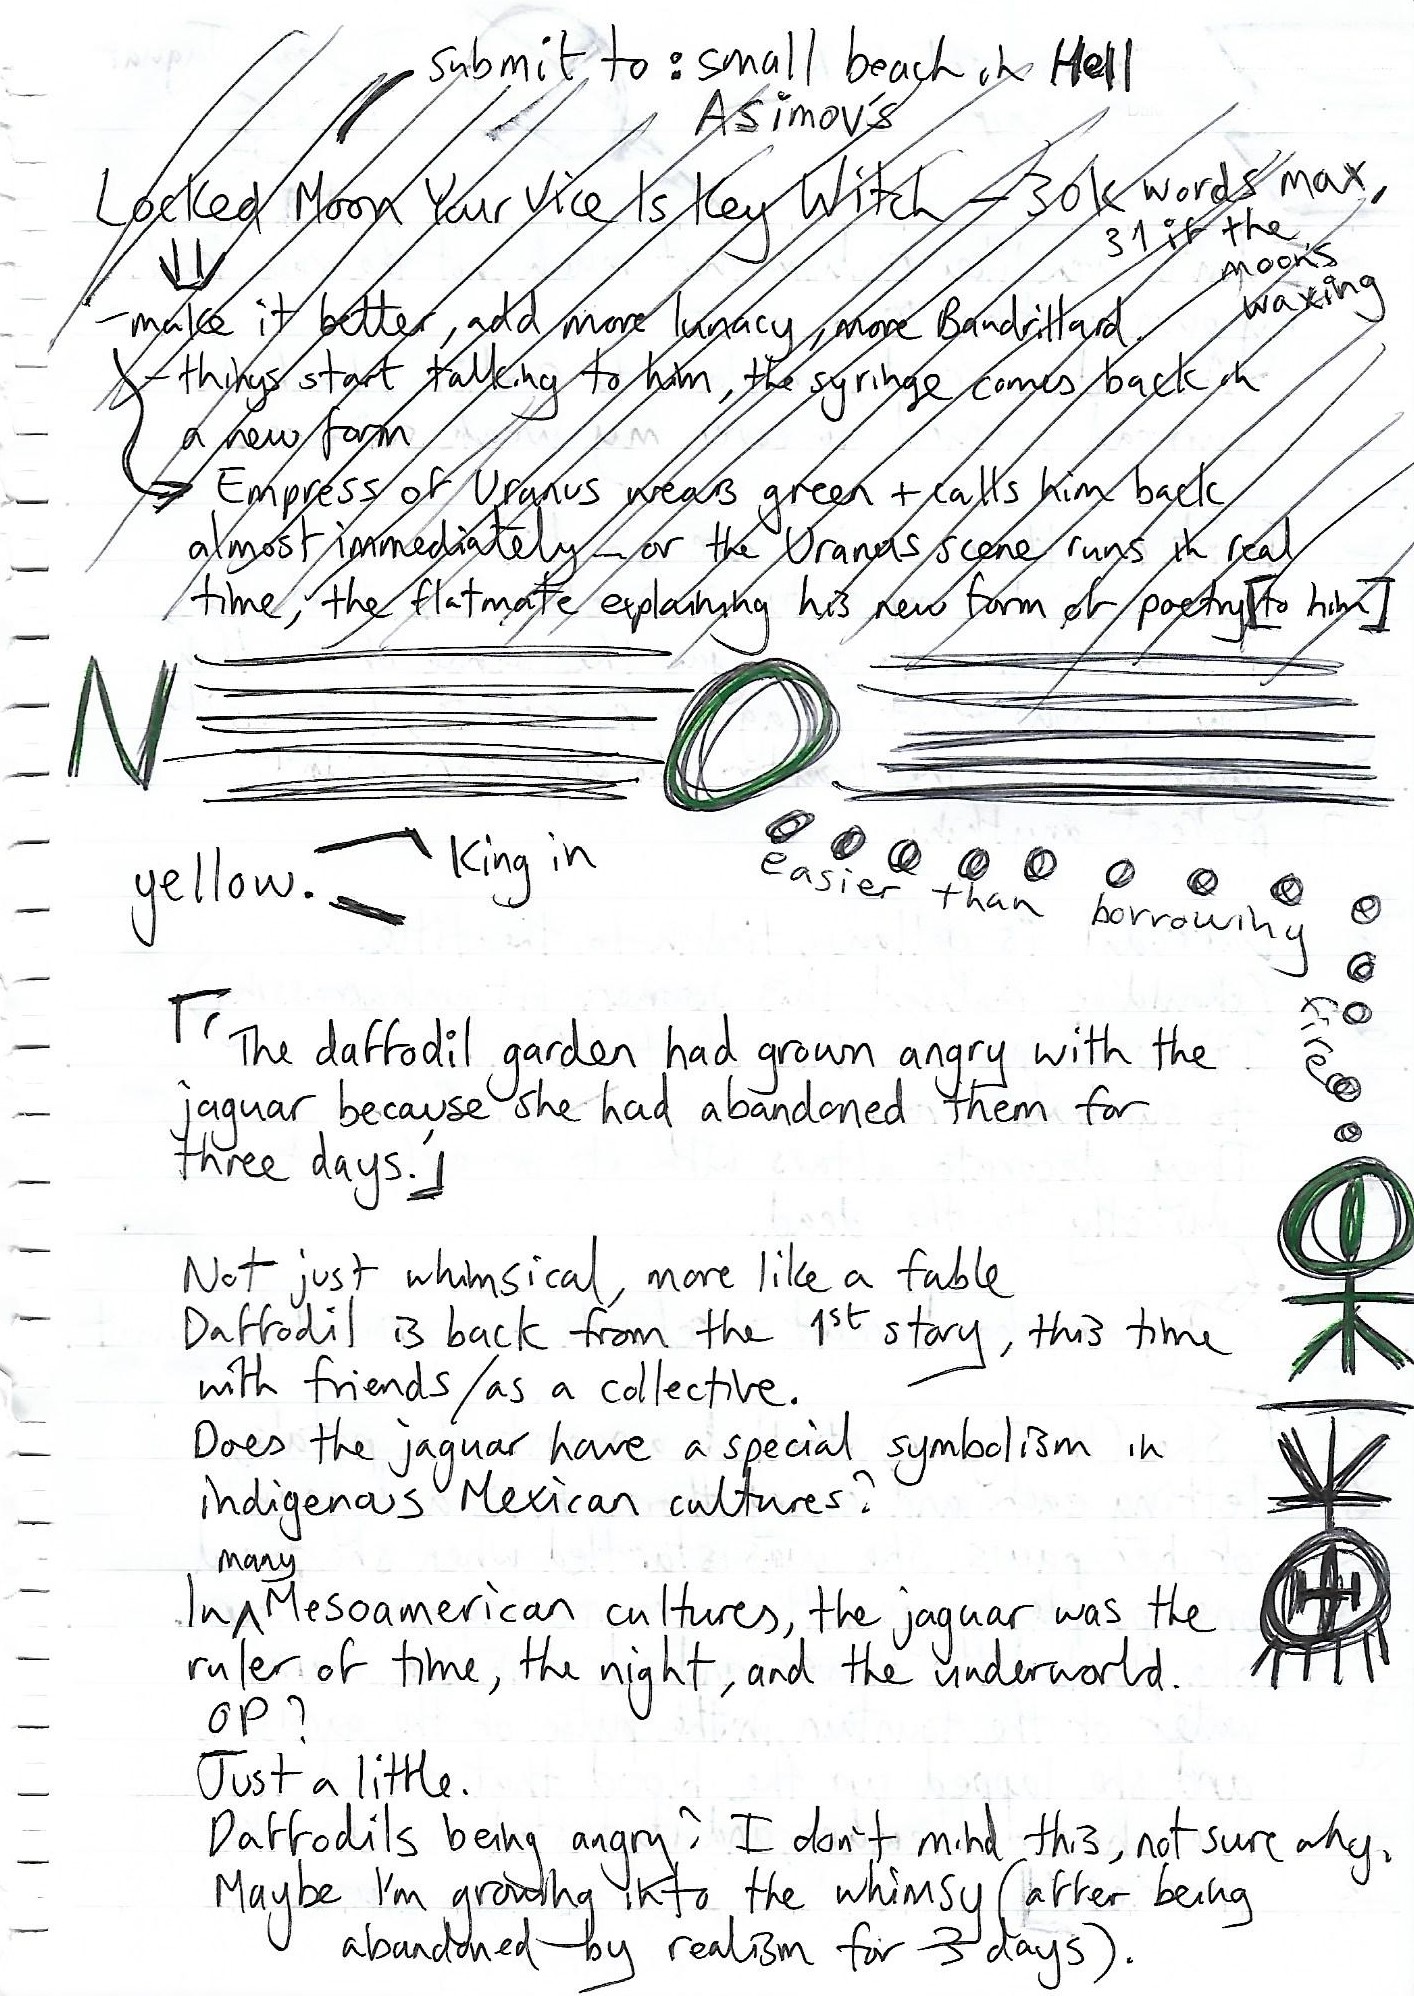 submit to: small beach in Hell
Asimov's
Locked Moon Your Vice Is Key Witch – 30k words max,
31 if the
moon's
waxing
- make it better, add more lunacy, more Baudrillard.
- things start talking to him, the syringe comes back in
a new form
Empress of Uranus wears green + calls him back
almost immediately – or the Uranus scene runs in real
time, the flatmate explaining his new form of poetry [to him]
N O
King in
yellow.
easier than borrowing
fire
「'The daffodil garden had grown angry with the
jaguar because she had abandoned them for
three days.'」
Not just whimsical, more like a fable
Daffodil is back from the 1st story, this time
with friends/as a collective.
Does the jaguar have a special symbolism in
indigenous Mexican cultures?
many
In ^ Mesoamerican cultures, the jaguar was the
ruler of time, the night, and the underworld.
OP?
Just a little.
Daffodils being angry? I don't mind this, not sure why.
Maybe I'm growing into the whimsy (after being
abandoned by realism for 3 days).